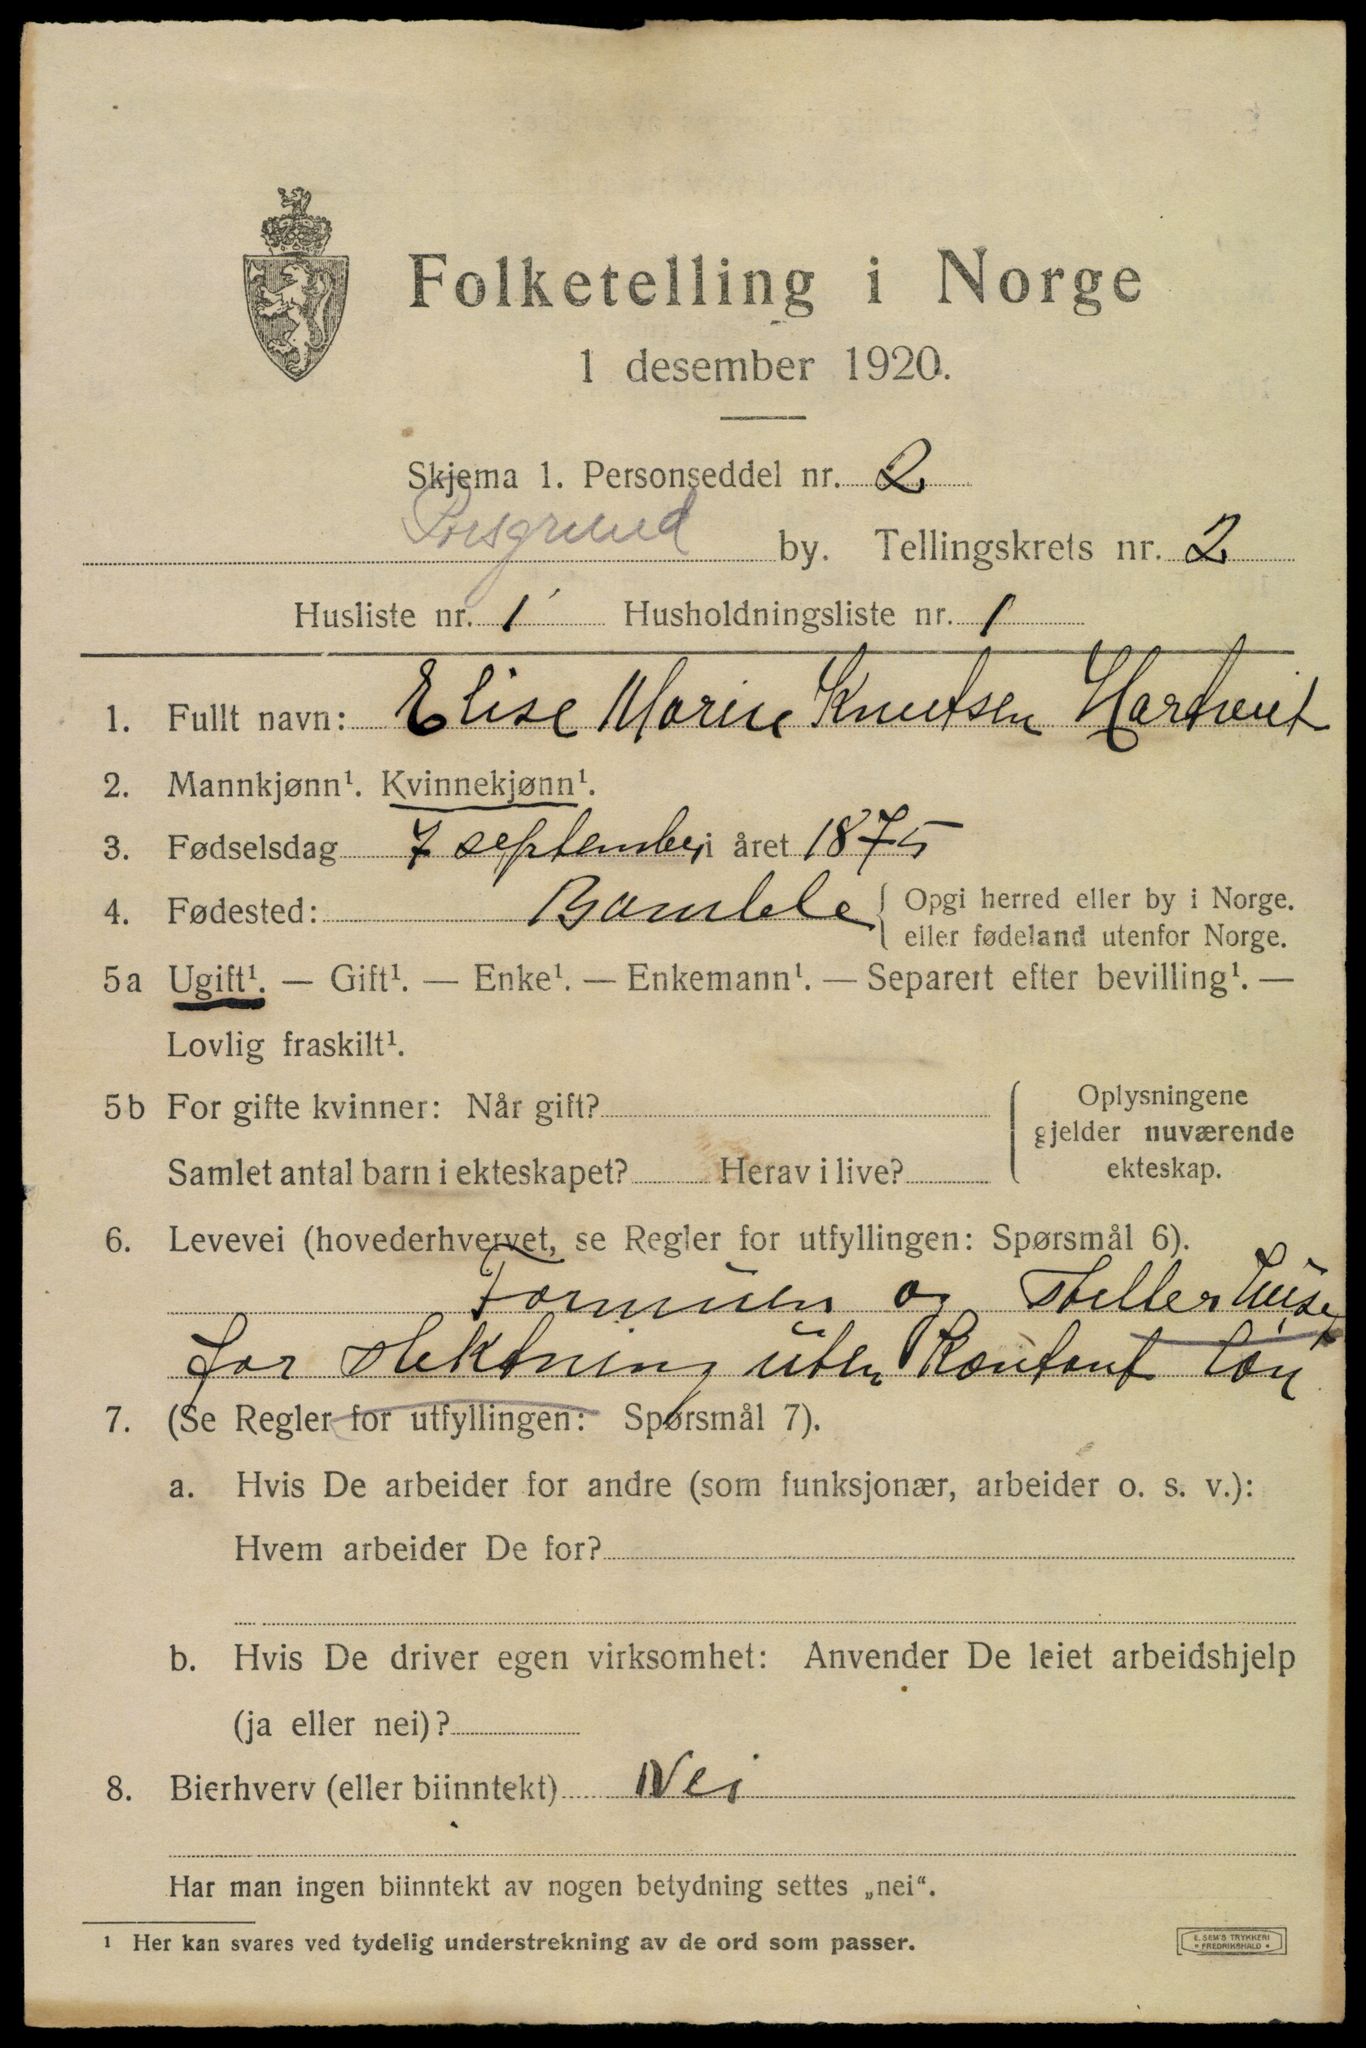 Folketelling i Norge
1 desember 1920.
Skjema 1. Personseddel nr. 2
Porsgrund by. Tellingskrets nr. 2
Husliste nr. 1 Husholdningsliste nr. 1
1. Fullt navn: Elise Marie Knutsen Hartveit
2. Mannkjønn¹. Kvinnekjønn¹.
3. Fødselsdag 7 september i året 1875
4. Fødested: Bamble { Opgi herred eller by i Norge.
eller fødeland utenfor Norge.
5a Ugift¹. — Gift¹. — Enke¹. — Enkemann¹. — Separert efter bevilling¹. —
Lovlig fraskilt¹.
5b For gifte kvinner: Når gift?
Samlet antal barn i ekteskapet? Herav i live?
Oplysningene
gjelder nuværende
ekteskap.
6. Levevei (hovederhvervet, se Regler for utfyllingen: Spørsmål 6).
Formuen og steller huse
for slektning uten kontant løn
7. (Se Regler for utfyllingen: Spørsmål 7).
a. Hvis De arbeider for andre (som funksjonær, arbeider o. s. v.):
Hvem arbeider De for?
b. Hvis De driver egen virksomhet: Anvender De leiet arbeidshjelp
(ja eller nei)?
8. Bierhverv (eller biinntekt) Nei
Har man ingen biinntekt av nogen betydning settes „nei“.
¹ Her kan svares ved tydelig understrekning av de ord som passer.
E. SEM'S TRYKKERI
• FREDRIKSHALD •